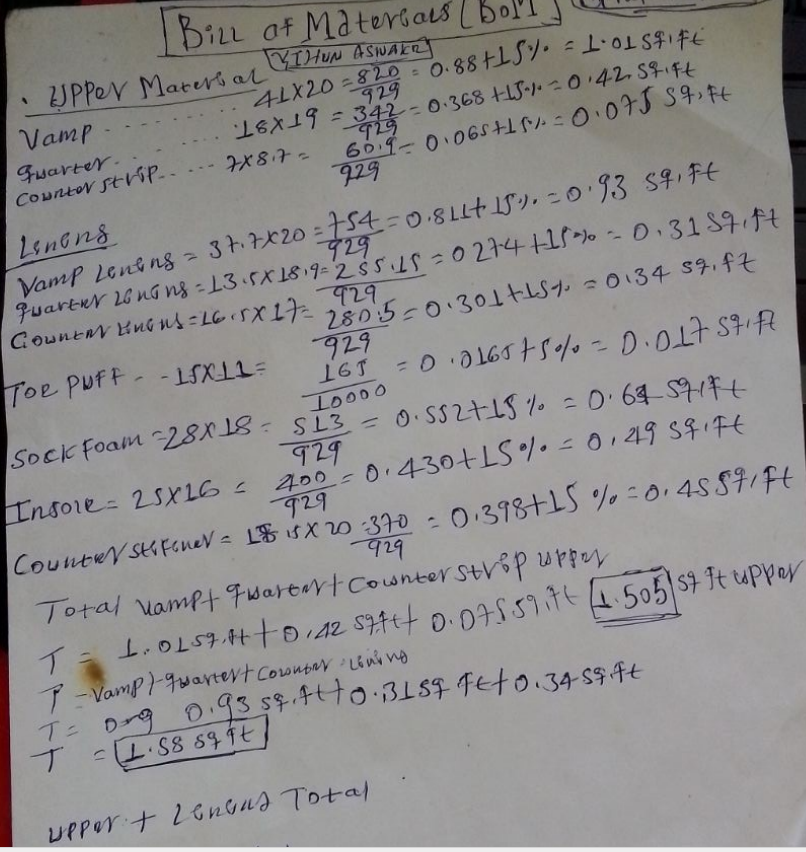 Bill of Materials (BOM)
YIHUN ASWAKE
. Upper Material
Vamp ........ 41x20 = 820/929 = 0.88+15% = 1.01 sq.ft
quarter...... 18x19 = 342/929 = 0.368+15% = 0.42 sq.ft
Counter strip..... 7x8.7 = 60.9/929 = 0.065+15% = 0.075 sq.ft
Lining
Vamp Lining = 37.7x20 = 754/929 = 0.811+15% = 0.93 sq.ft
quarter lining = 13.5x18.9 = 255.15/929 = 0274+15% = 0.31 sq.ft
Counter lining = 16.5x17 = 280.5/929 = 0.301+15% = 0.34 sq.ft
Toe puff - - 15x11 = 165/10000 = 0.0165+5% = 0.017 sq.ft
Sock Foam = 28x18 = 513/929 = 0.552+15% = 0.64 sq.ft
Insole = 25x16 = 400/929 = 0.430+15% = 0.49 sq.ft
Counter stifener = 18.5x20 = 370/929 = 0.398+15% = 0.45 sq.ft
Total vamp+quarter+counter strip upper
T = 1.01 sq.ft+0.42 sq.ft+0.075 sq.ft 1.505 sq ft upper
T - Vamp+quarter+counter lining
T = 0.93 sq.ft+0.31 sq ft+0.34 sq.ft
T = 1.58 sq ft
upper + Lining Total